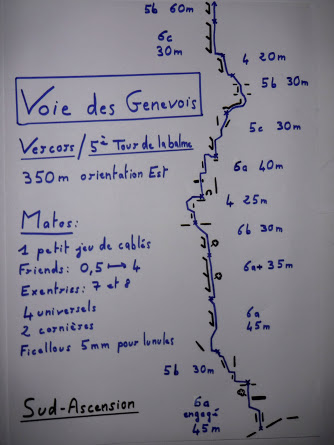 5b 60m
6c
30m
4 20m
5b 30m
Voie des Genevois
5c 30m
Vercors / 5è Tour de la balme
350m orientation Est
6a 40m
4 25m
Matos:
1 petit jeu de cablés
Friends: 0,5 ↦ 4
Exentries: 7 et 8
4 universels
2 cornières
Ficellous 5mm pour lunules
6b 30m
6a+ 35m
6a
45m
5b 30m
Sud-Ascension
6a
engagé
45m